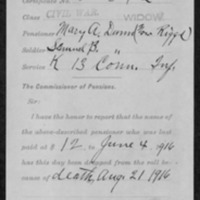 Certificate No.
Class CIVIL WAR WIDOW
Pensioner Mary A. Dunn
Soldier Samuel B. "
Service K 13 Conn. Inf.
The Commissioner of Pensions.
No.
I have the honor to report that the name
of the above-described pensioner who was last
paid at $ 12, to June 4, 916
has this day been dropped from the roll be-
cause of death, Aug 21, 1916